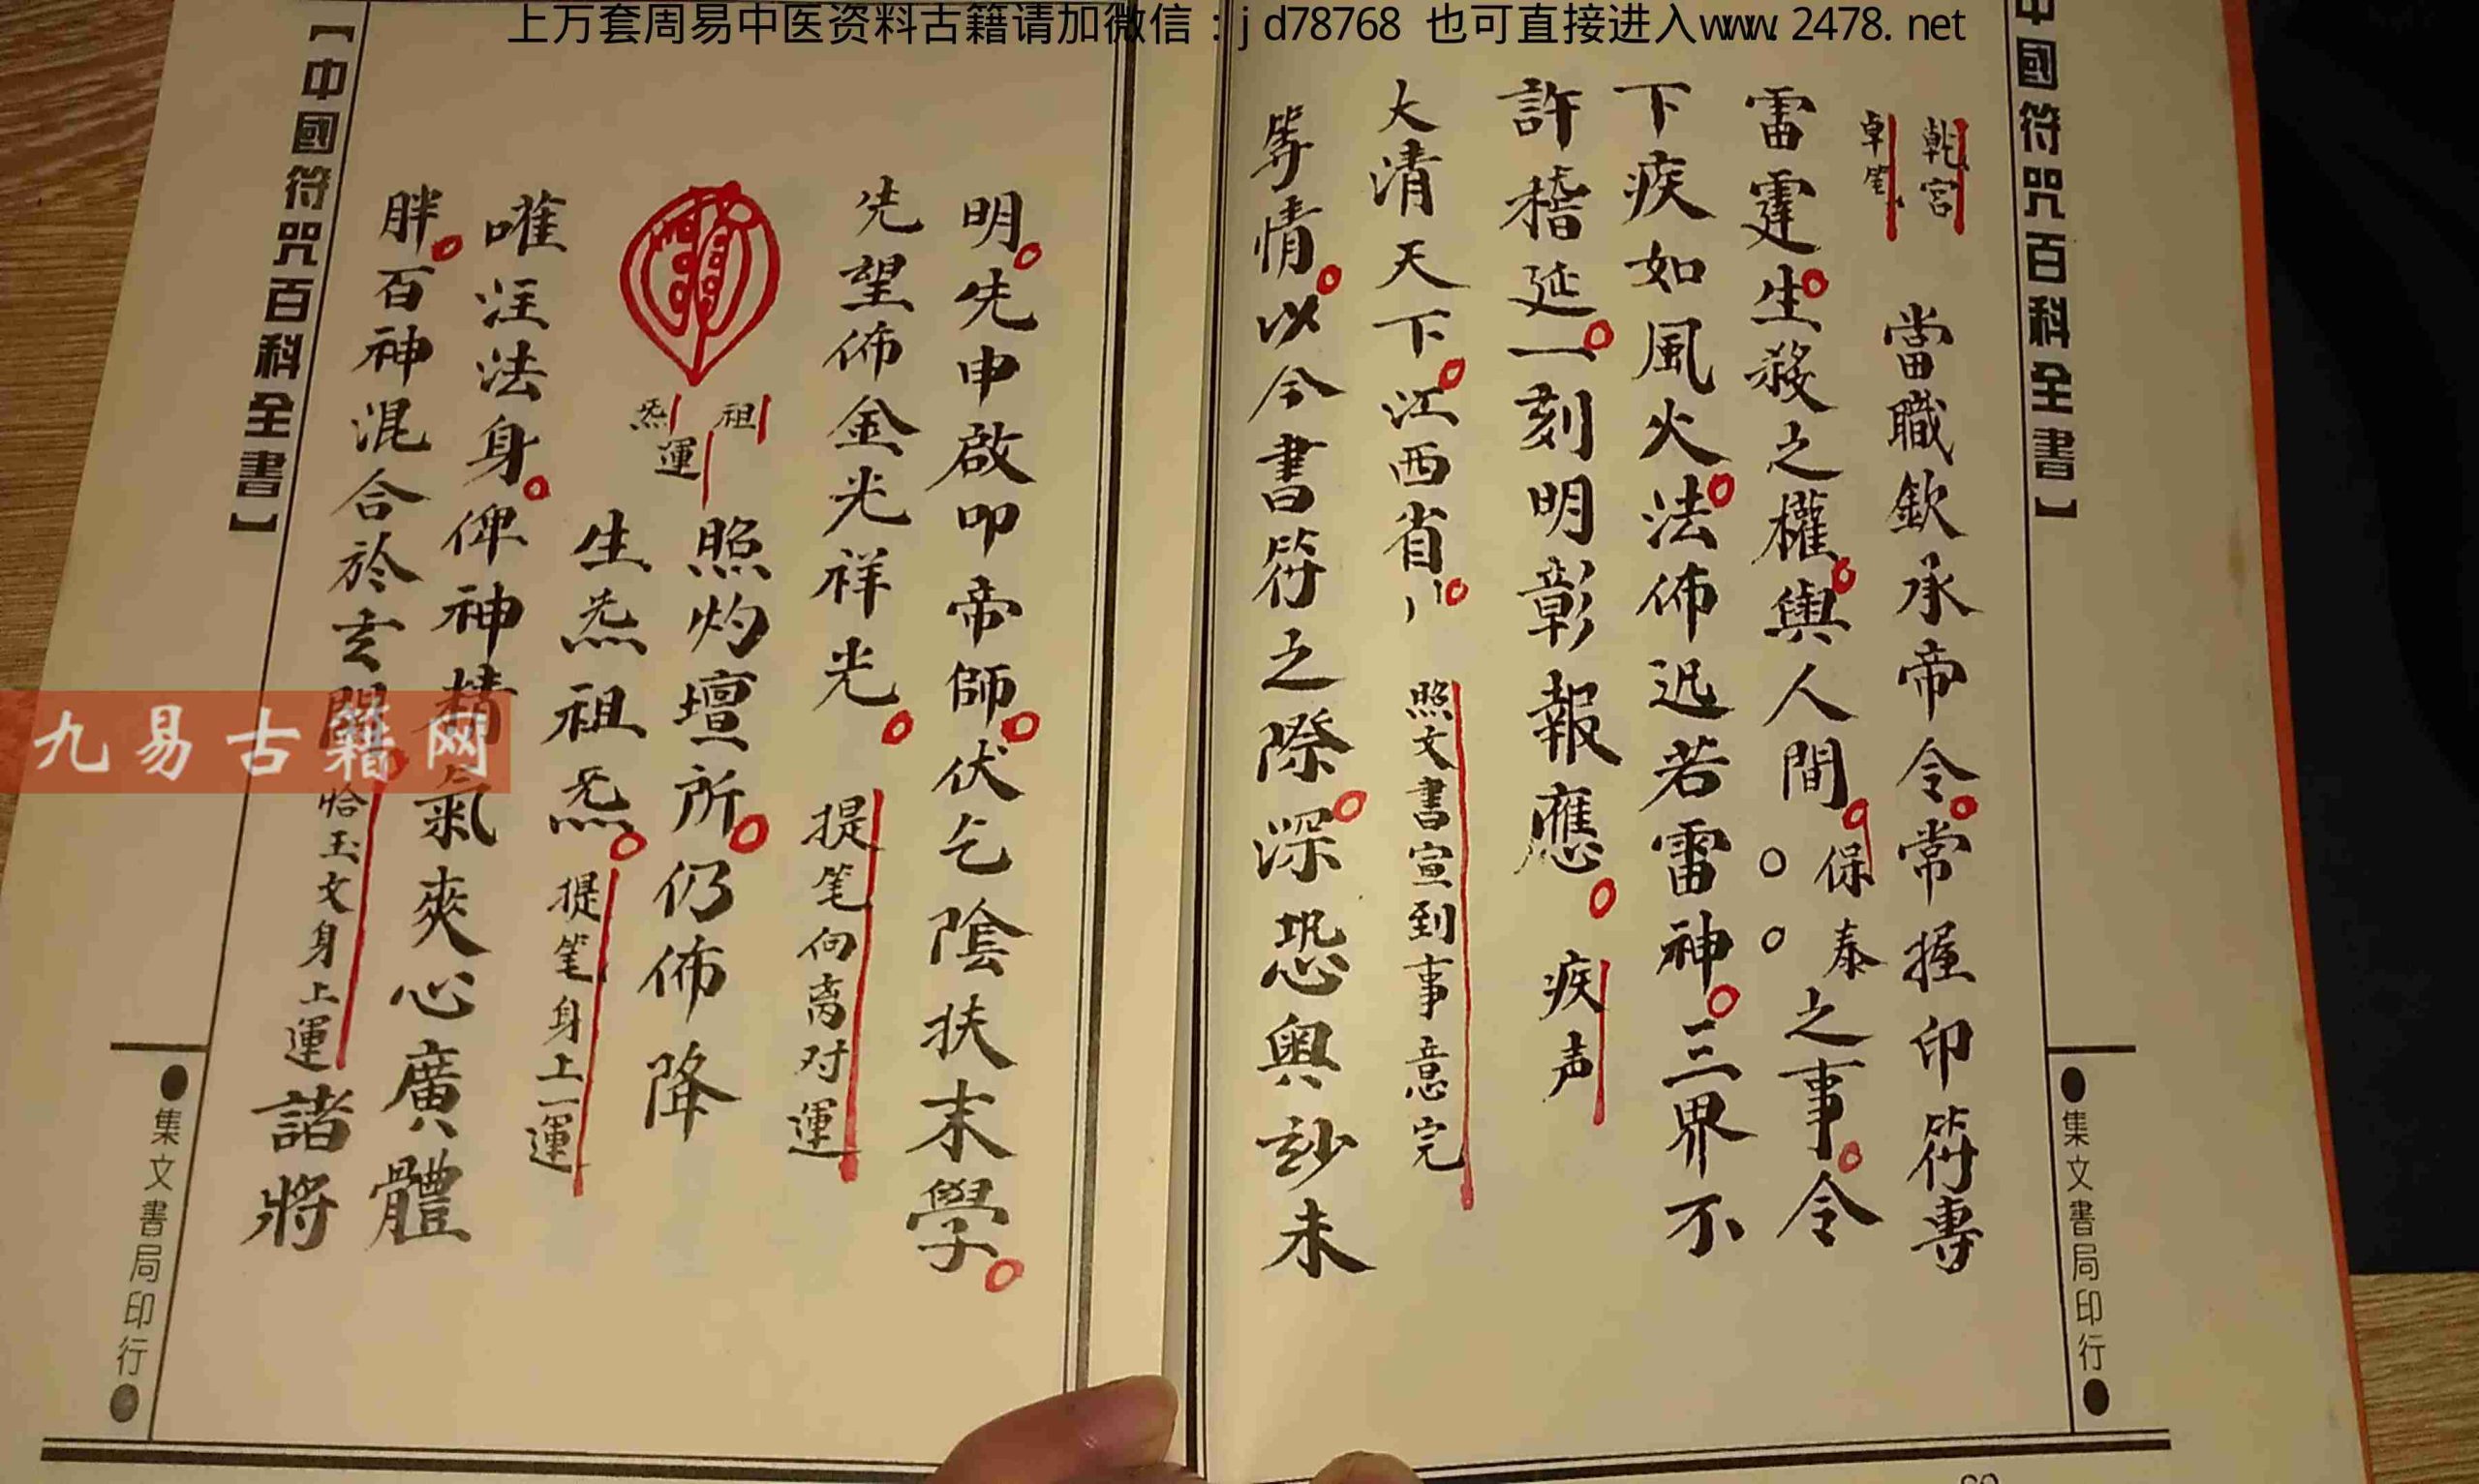 上万套周易中医资料古籍请加微信：jd78768 也可直接进入www.2478.net
中國符咒百科全書】
●集文書局印行●
乾宮
卓笔
當職欽承帝令常握印符專
雷霆生殺之權與人間保泰之事令
下疾如風火法佈迅若雷神三界不
許稽延一刻明彰報應 疾声
大清天下江西省 照文書宣到事意完
等情以今書符之際深恐奧玅未
明先申啟叩帝師伏乞陰扶末學
先望佈金光祥光 提笔向离对運
祖
運
炁
照灼壇所仍佈降
生炁祖炁 提笔身上運
嚾汪法身俾神精氣爽心廣體
胖百神混合於玄關 恰玉文身上運 諸將
【中國符咒百科全書】
●集文書局印行●
九易古籍网